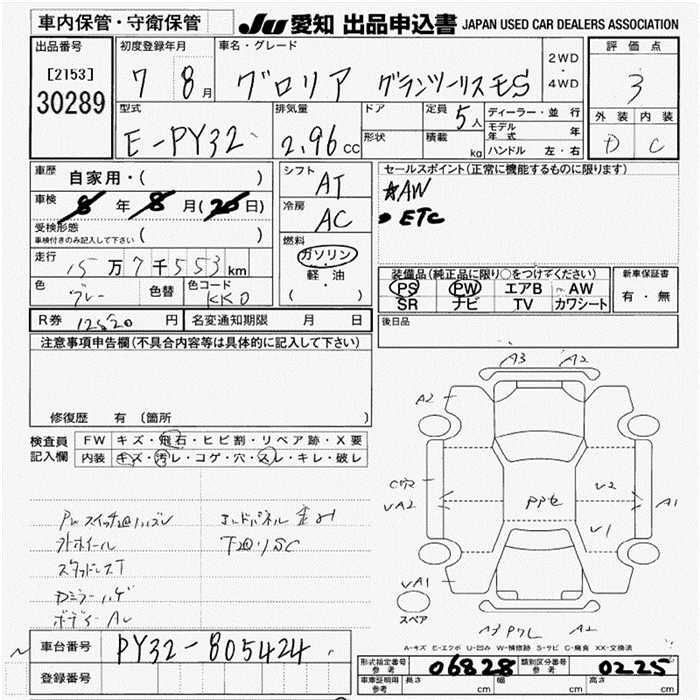 車内保管・守衛保管 JU 愛知 出品申込書 JAPAN USED CAR DEALERS ASSOCIATION
出品番号 初度登録年月 車名・グレード 2WD・4WD 評価点
[2153] 7 8月 グロリア グランツーリスモS 3
30289 型式 排気量 ドア 定員 5人 ディーラー・並行 外装 内装
E-PY32 2.96cc 形状 積載 kg モデル年式 年 D C
ハンドル 左・右
車歴 自家用・( ) シフト AT セールスポイント(正常に機能するものに限ります)
車検 8年 8月(26日) 冷房 AC ☆AW
受検形態 ( ) • ETC
車検付きのみ記入して下さい
燃料 ガソリン・軽・油 ( )
走行 15万7千553km
色 グレー 色替 色コード KK0
装備品(純正品に限り○をつけてください) 新車保証書
PS PW エアB AW 有・無
SR ナビ TV カワシート
R券 12820円 名変通知期限 月 日 後日品
注意事項申告欄(不具合内容等は具体的に記入して下さい)
修復歴 有(箇所
検査員記入欄 FW キズ・飛石・ヒビ割・リペア跡・X要
内装 キズ・汚レ・コゲ・穴・スレ・キレ・破レ
A3 A2
A2
C穴
VA2 PPセ V2 A1
V1
VA1
スペア
A2
PWスイッチ
外ホイール 下回りSC
スタッドレスT
Dミラーハゲ
ボディーAU
A-キズ E-エクボ U-凹み W-補修跡 S-サビ C-腐食 XX-交換済
車台番号 PY32-805424
登録番号
形式指定番号 参考 06828 類別区分番号 参考 0225
車庫証明用 参考 長さ cm 幅 cm 高さ cm